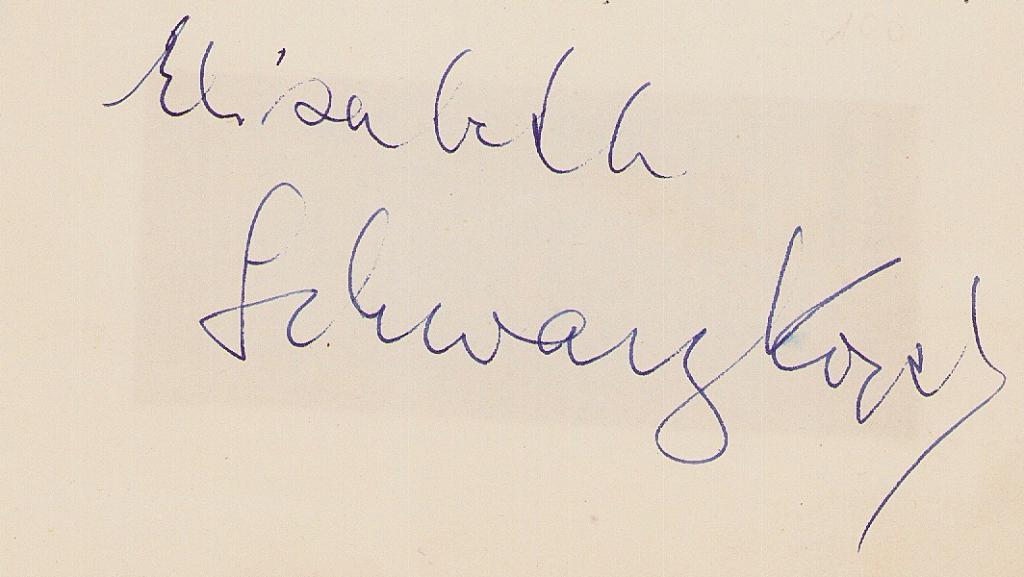 Elisabeth
Schwarzkopf